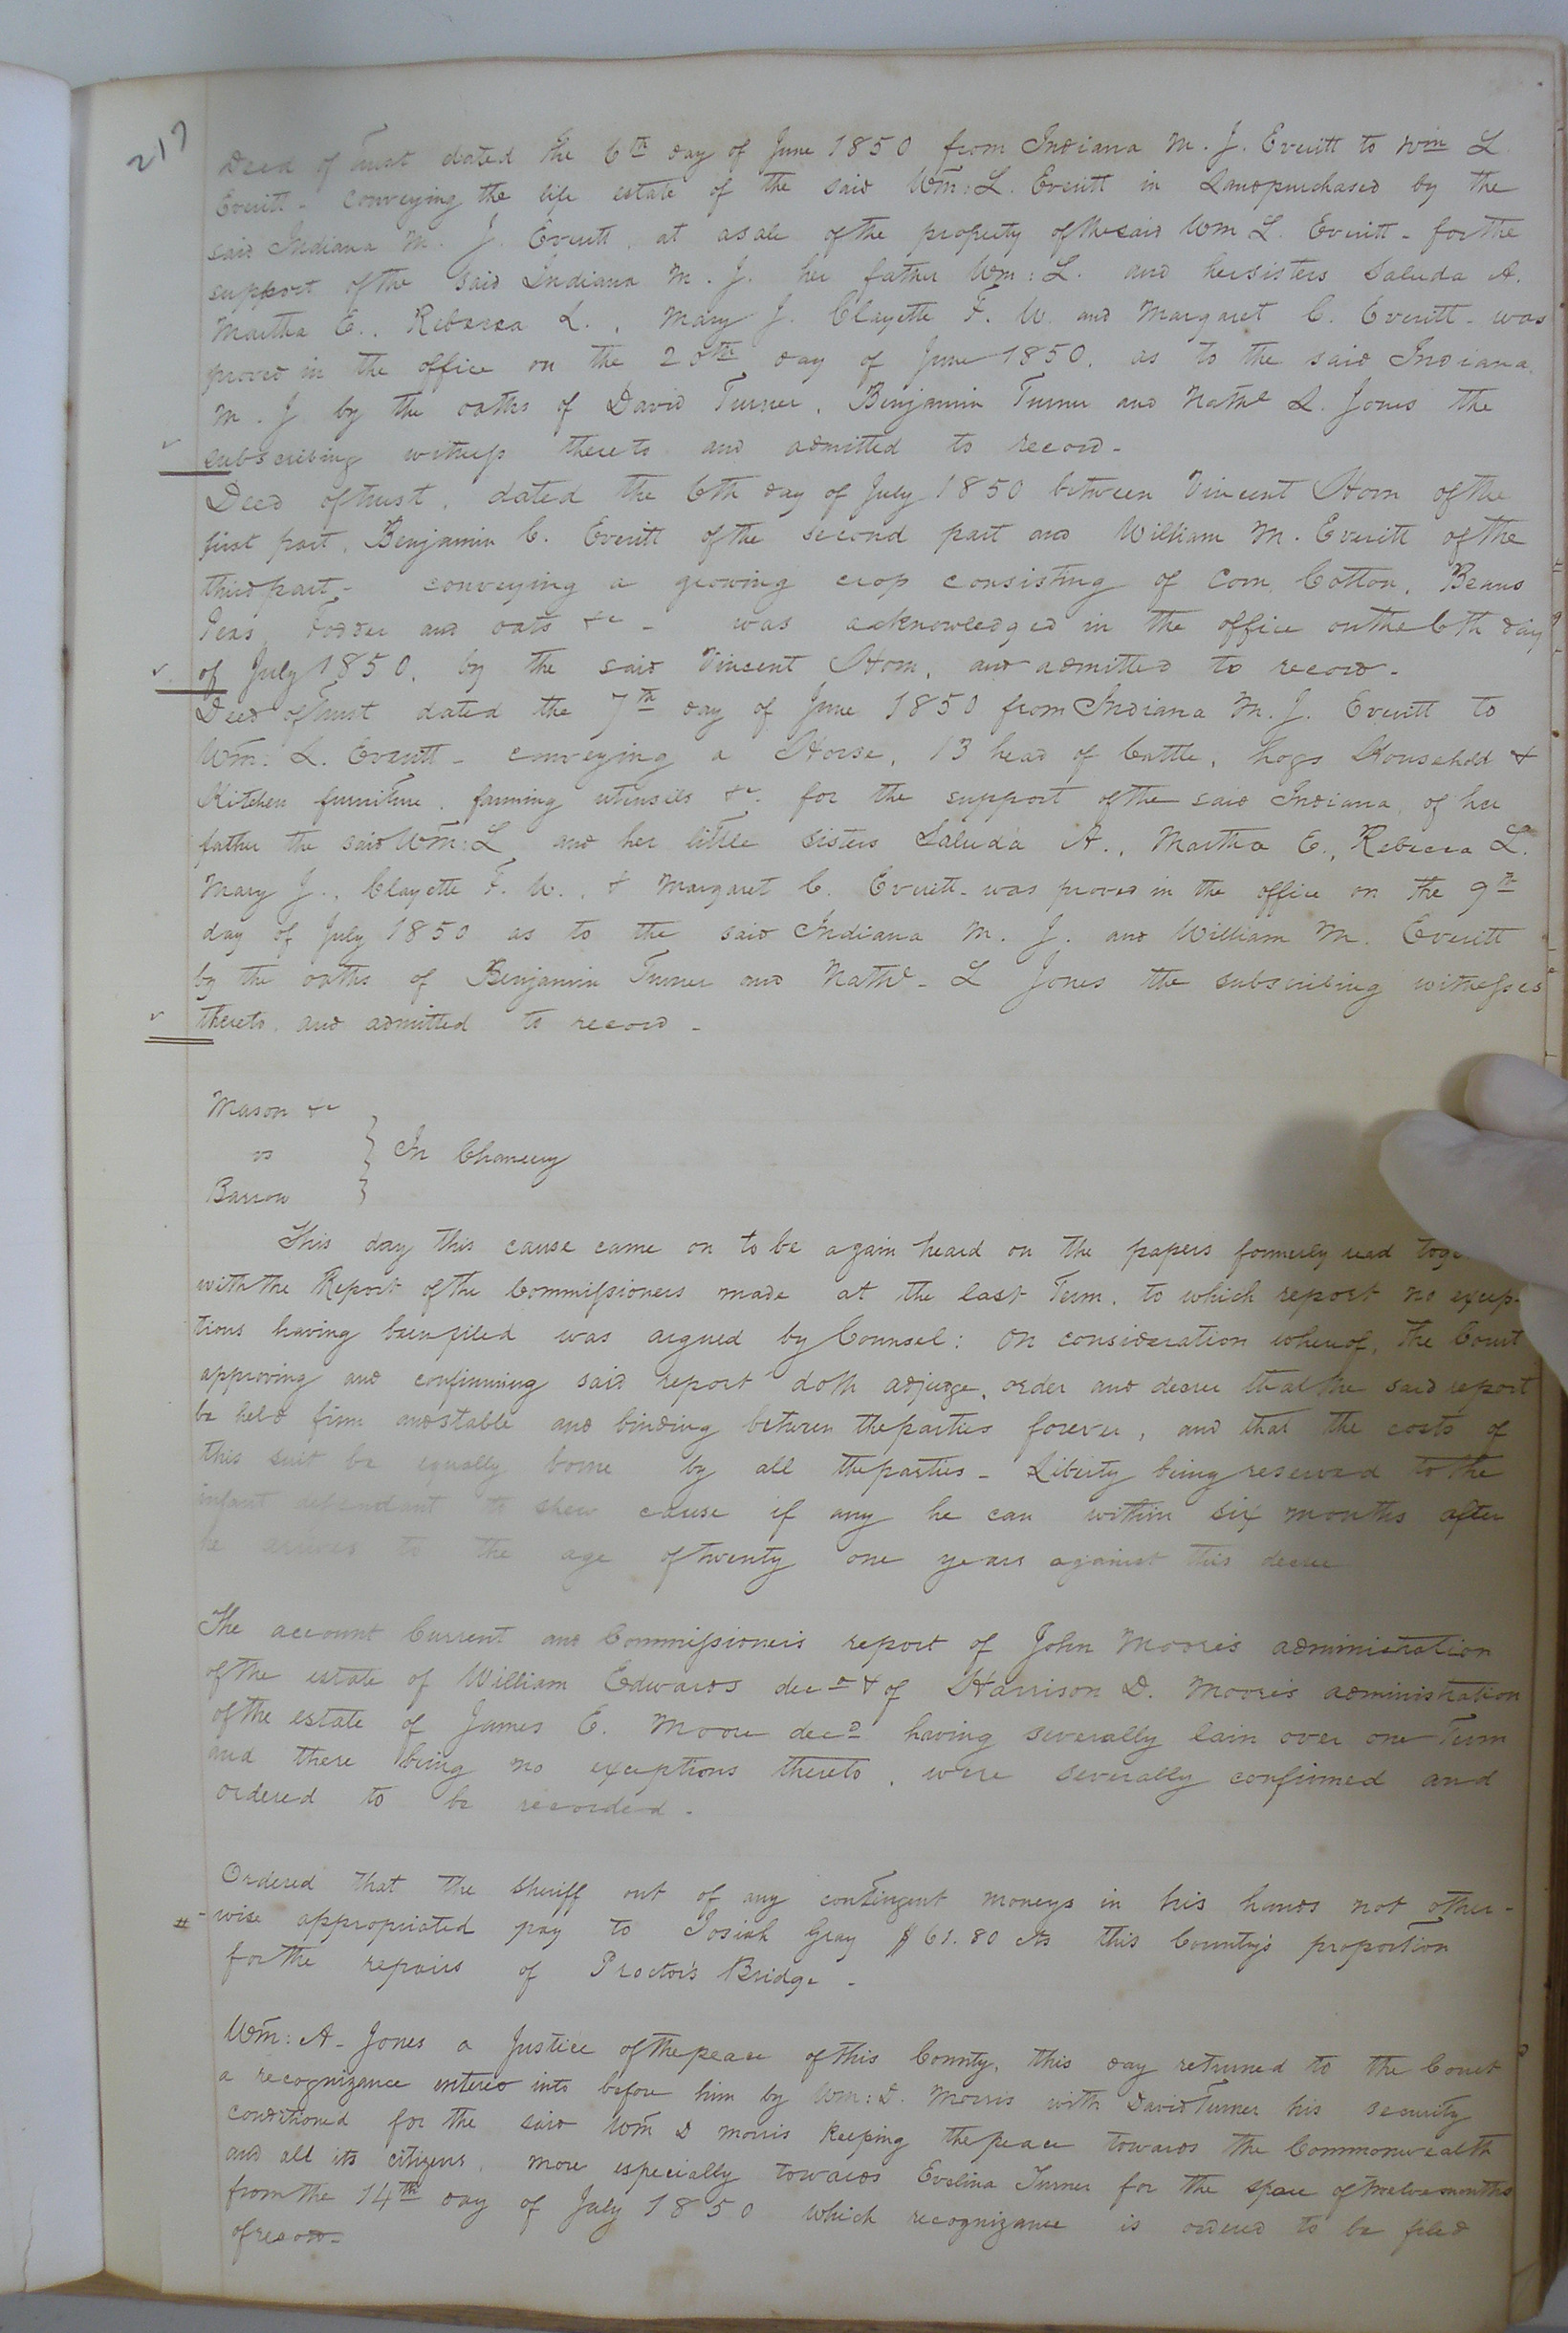 217
Deed of Trust dated the 6th day of June 1850 from Indiana M. J. Everitt to Wm L.
Everitt - conveying the life estate of the said Wm: L. Everitt in Land purchased by the
said Indiana M. J. Everitt, at a sale of the property of the said Wm L. Everitt - for the
support of the said Indiana M. J. her father Wm: L. and her sisters Saluda A.
Martha E., Rebecca L., Mary J. Clayette F. W. and Margaret C. Everitt - was
proved in the office on the 20th day of June 1850. as to the said Indiana
M. J by the oaths of David Turner, Benjamin Turner and Nathl L. Jones the
subscribing witness thereto and admitted to record -
Deed of trust, dated the 6th day of July 1850 between Vincent Horn of the
first part, Benjamin C. Everitt of the second part and William M. Everitt of the
third part - conveying a growing crop consisting of Corn, Cotton, Beans
Peas, Fodder and oats &c - was acknowledged in the office on the 6th day
of July 1850, by the said Vincent Horn, and admitted to record -
Deed of Trust dated the 7th day of June 1850 from Indiana M. J. Everitt to
Wm: L. Everitt - conveying a Horse, 13 head of Cattle, hogs Household &
Kitchen furniture, farming utensils &c. for the support of the said Indiana, of her
father the said Wm: L and her little sisters Saluda A., Martha E., Rebecca L.
Mary J., Clayette F. W., & Margaret C. Everett - was proved in the office on the 9th
day of July 1850 as to the said Indiana M. J. and William M. Everitt
by the oaths of Benjamin Turner and Nathl - L Jones the subscribing witnesses
thereto and admitted to record -
Mason &c
vs } In Chancery
Barrow }
This day this cause came on to be again heard on the papers formerly read toge
with the Report of the Commissioners made at the last Term, to which report no excep-
tions having been filed was argued by Counsel: On consideration whereof, the Court
approving and confirming said report doth adjudge, order and decree that the said report
be held firm and stable and binding between the parties forever, and that the costs of
this suit be equally borne by all the parties - Liberty being reserved to the
infant defendant to shew cause if any he can within six months after
he arrives to the age of twenty one years against this decree
The account Current and Commissioners report of John Moore's administration
of the estate of William Edwards decd & of Harrison D. Moore's administration
of the estate of James E. Moore decd having severally lain over one Term
and there being no exceptions thereto, were severally confirmed and
ordered to be recorded -
Ordered that the Sheriff out of any contingent moneys in his hands not other-
# - wise appropriated pay to Josiah Gray $61.80 cts this County's proportion
for the repairs of Proctor's Bridge -
Wm: A - Jones a Justice of the peace of this County, this day returned to the Court
a recognizance entered into before him by Wm: D. Morris with David Turner his security
conditioned for the said Wm D Morris keeping the peace towards the Commonwealth
and all its citizens, more especially towards Evelina Turner for the space of twelve months
from the 14th day of July 1850 which recognizance is ordered to be filed
of record -